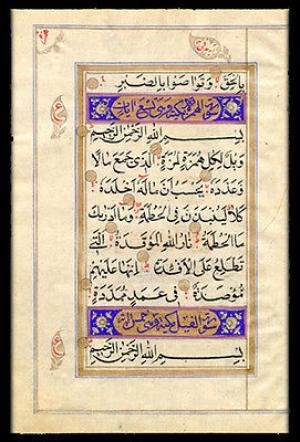 بِالحَقِّ وَتَوَاصَوْا بِالصَّبْرِ
سورة الهمزة مكية وهي تسع آيات
بِسْمِ اللهِ الرَّحْمٰنِ الرَّحِيمِ
وَيْلٌ لِكُلِّ هُمَزَةٍ لُمَزَةٍ الَّذِي جَمَعَ مَالًا
وَعَدَّدَهُ يَحْسَبُ اَنَّ مَالَهُ اَخْلَدَهُ
كَلَّا لَيُنْبَذَنَّ فِي الْحُطَمَةِ وَمَا اَدْرٰيكَ
مَا الْحُطَمَةُ نَارُ اللهِ الْمُوقَدَةُ الَّتِي
تَطَّلِعُ عَلَى الْاَفْئِدَةِ اِنَّهَا عَلَيْهِمْ
مُؤْصَدَةٌ فِي عَمَدٍ مُمَدَّدَةٍ
سورة الفيل مكية وهي خمس آيات
بِسْمِ اللهِ الرَّحْمٰنِ الرَّحِيمِ